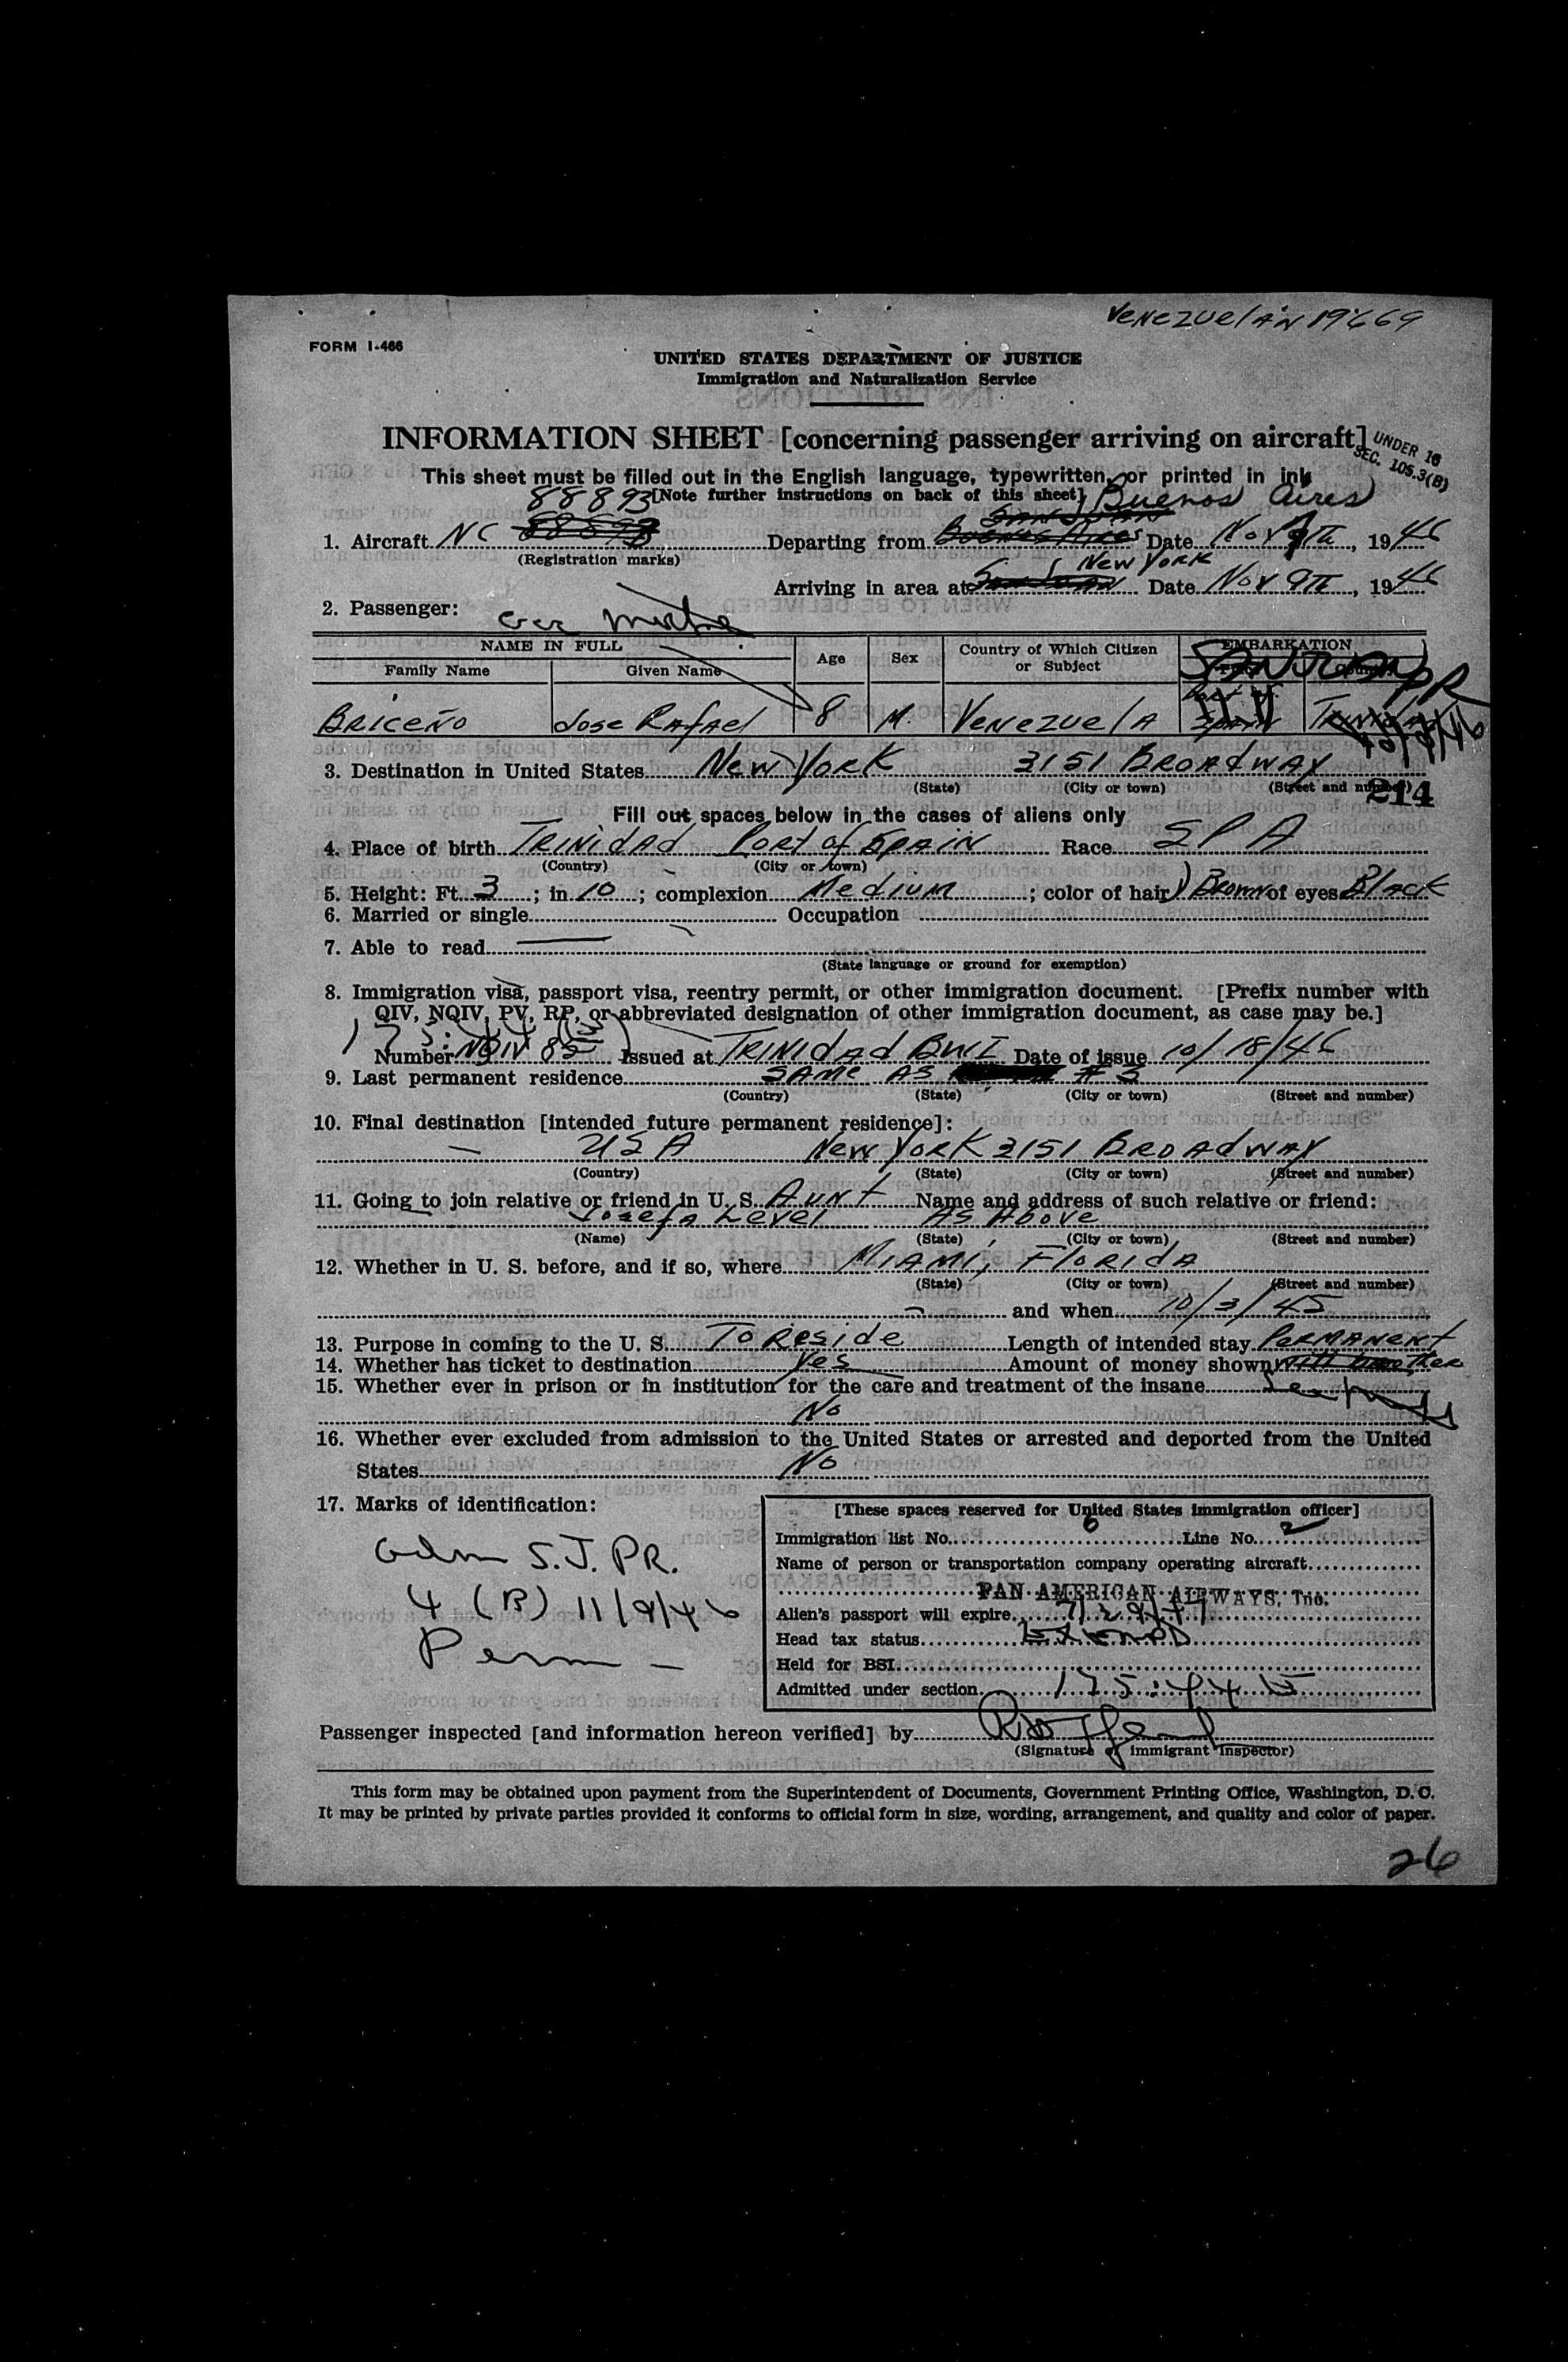 Venezuelan 19669
FORM I-466
UNITED STATES DEPARTMENT OF JUSTICE
Immigration and Naturalization Service
INFORMATION SHEET [concerning passenger arriving on aircraft]
UNDER 16
SEC. 105.3(B)
This sheet must be filled out in the English language, typewritten, or printed in ink
88893 [Note further instructions on back of this sheet] Buenos Aires
SAN JUAN
1. Aircraft NC Departing from Buenos Aires Date Nov 9th, 1946
(Registration marks) New York
Arriving in area at San Juan Date Nov 9th, 1946
2. Passenger:
NAME IN FULL Age Sex Country of Which Citizen or Subject EMBARKATION
Family Name Given Name
SAN JUAN PR
BRICEÑO Jose Rafael 8 M. Venezuela Port of Spain Trinidad
3. Destination in United States New York 3151 Broadway
(State) (City or town) (Street and number)
214
Fill out spaces below in the cases of aliens only
4. Place of birth Trinidad Port of Spain Race SPA
(Country) (City or town)
5. Height: Ft. 3; in 10; complexion Medium; color of hair Brown of eyes Black
6. Married or single Occupation
7. Able to read
(State language or ground for exemption)
8. Immigration visa, passport visa, reentry permit, or other immigration document. [Prefix number with
QIV, NQIV, PV, RP, or abbreviated designation of other immigration document, as case may be.]
Number NQIV 82 Issued at Trinidad BWI Date of issue 10/18/46
9. Last permanent residence Same as # 3
(Country) (State) (City or town) (Street and number)
10. Final destination [intended future permanent residence]:
USA New York 3151 Broadway
(Country) (State) (City or town) (Street and number)
11. Going to join relative or friend in U. S. Aunt Name and address of such relative or friend:
Josefa Level As Above
(Name) (State) (City or town) (Street and number)
12. Whether in U. S. before, and if so, where Miami, Florida
(State) (City or town) (Street and number)
and when 10/3/45
13. Purpose in coming to the U. S. To Reside Length of intended stay Permanent
14. Whether has ticket to destination Yes Amount of money shown
15. Whether ever in prison or in institution for the care and treatment of the insane
No
16. Whether ever excluded from admission to the United States or arrested and deported from the United
States No
17. Marks of identification:
Adm S.J. PR.
4 (B) 11/9/46
Perm —
[These spaces reserved for United States immigration officer]
Immigration list No. 6 Line No. 2
Name of person or transportation company operating aircraft
PAN AMERICAN AIRWAYS, Inc.
Alien's passport will expire
Head tax status
Held for BSI
Admitted under section
Passenger inspected [and information hereon verified] by
(Signature of immigrant inspector)
This form may be obtained upon payment from the Superintendent of Documents, Government Printing Office, Washington, D. C.
It may be printed by private parties provided it conforms to official form in size, wording, arrangement, and quality and color of paper.
26